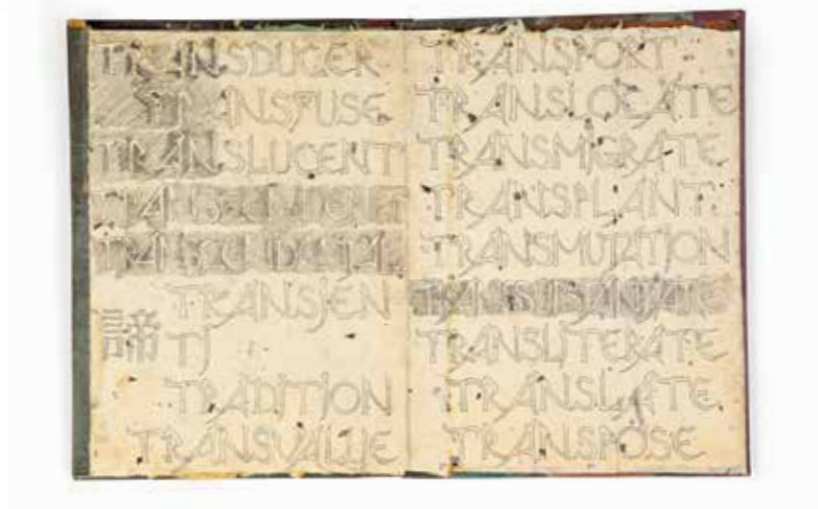 TRANSDUCER
TRANSFUSE
TRANSLUCENT
TRANSCENDENT
TRANSIEN
諦 TI
TRADITION
TRANSVALUE
TRANSPORT
TRANSLOCATE
TRANSMIGRATE
TRANSPLANT
TRANSMUTATION
TRANSLITERATE
TRANSLATE
TRANSPOSE